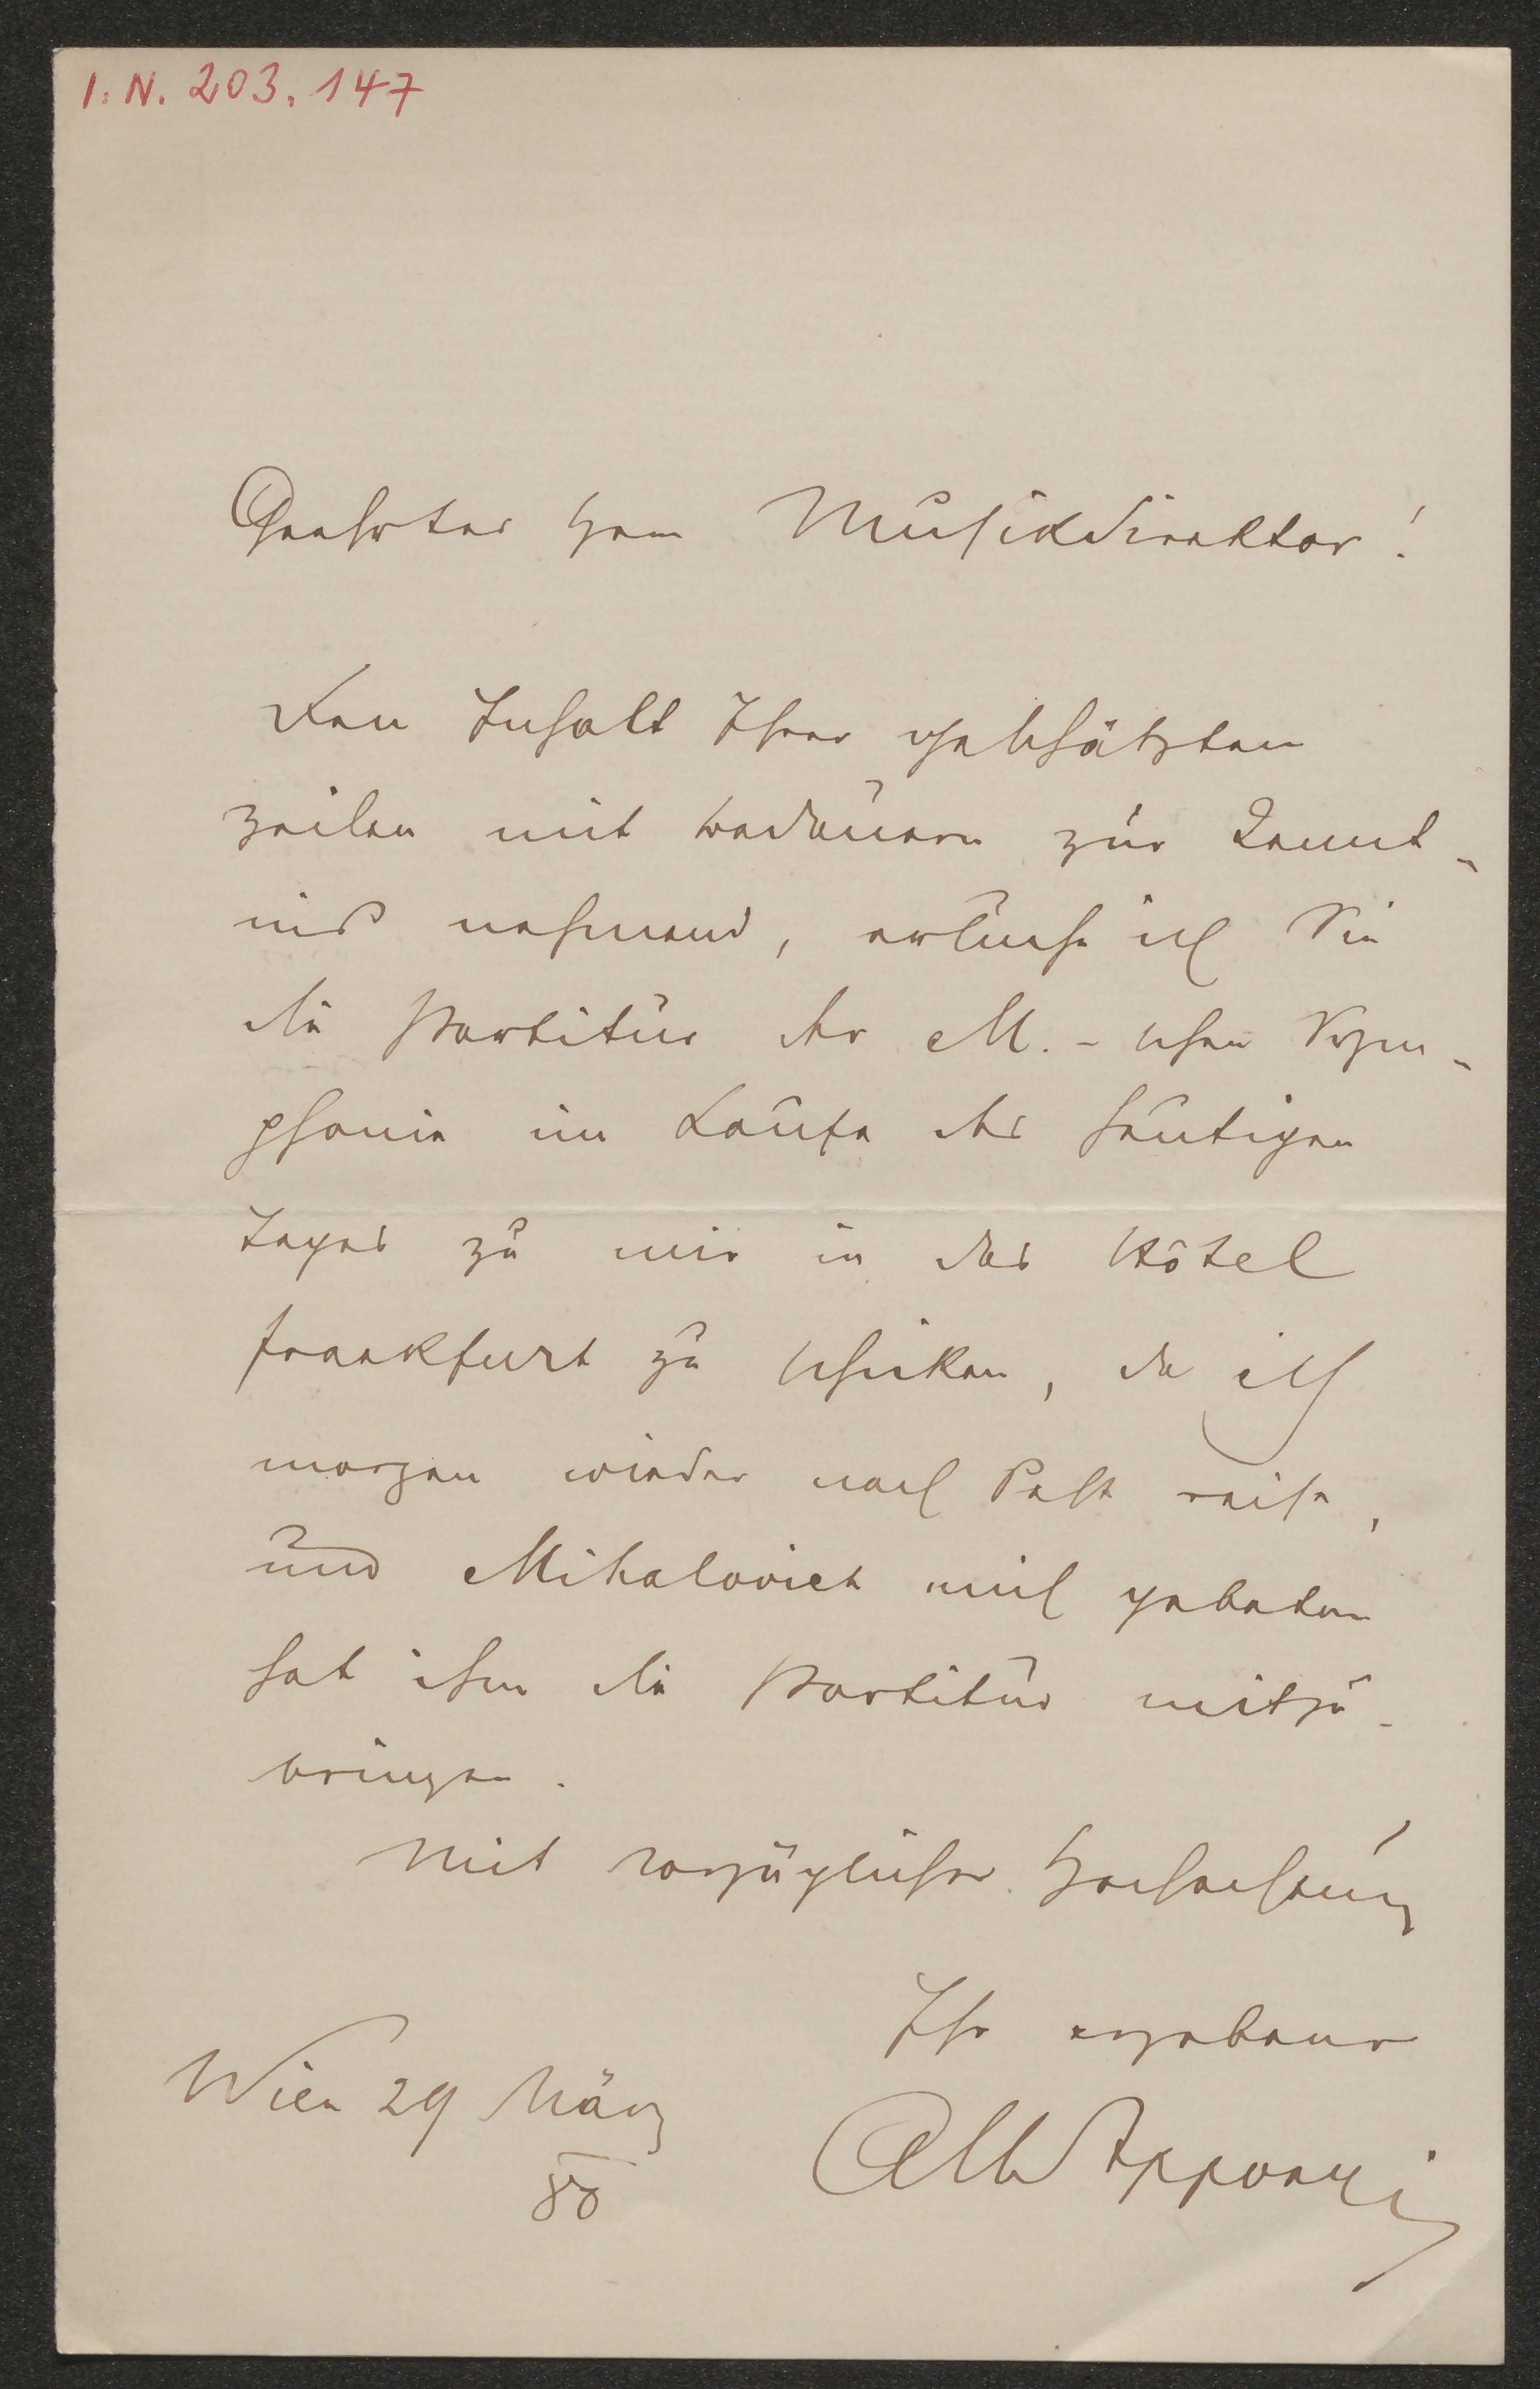 I. N. 203. 147
Geehrter Herr Musikdirektor!
Den Inhalt Ihrer geschätzten
Zeilen mit Bedauern zur Kennt-
niß nehmend, ersuche ich Sie
die Partitur der M.-schen Sym-
phonie im Laufe des heutigen
Tages zu mir in das Hôtel
Frankfurt zu schicken, da ich
morgen wieder nach Pest reise,
und Mihalovich mich gebeten
hat ihm die Partitur mitzu-
bringen.
Mit vorzüglicher Hochachtung
Ihr ergebener
Wien 29 März
Alb Apponyi
80